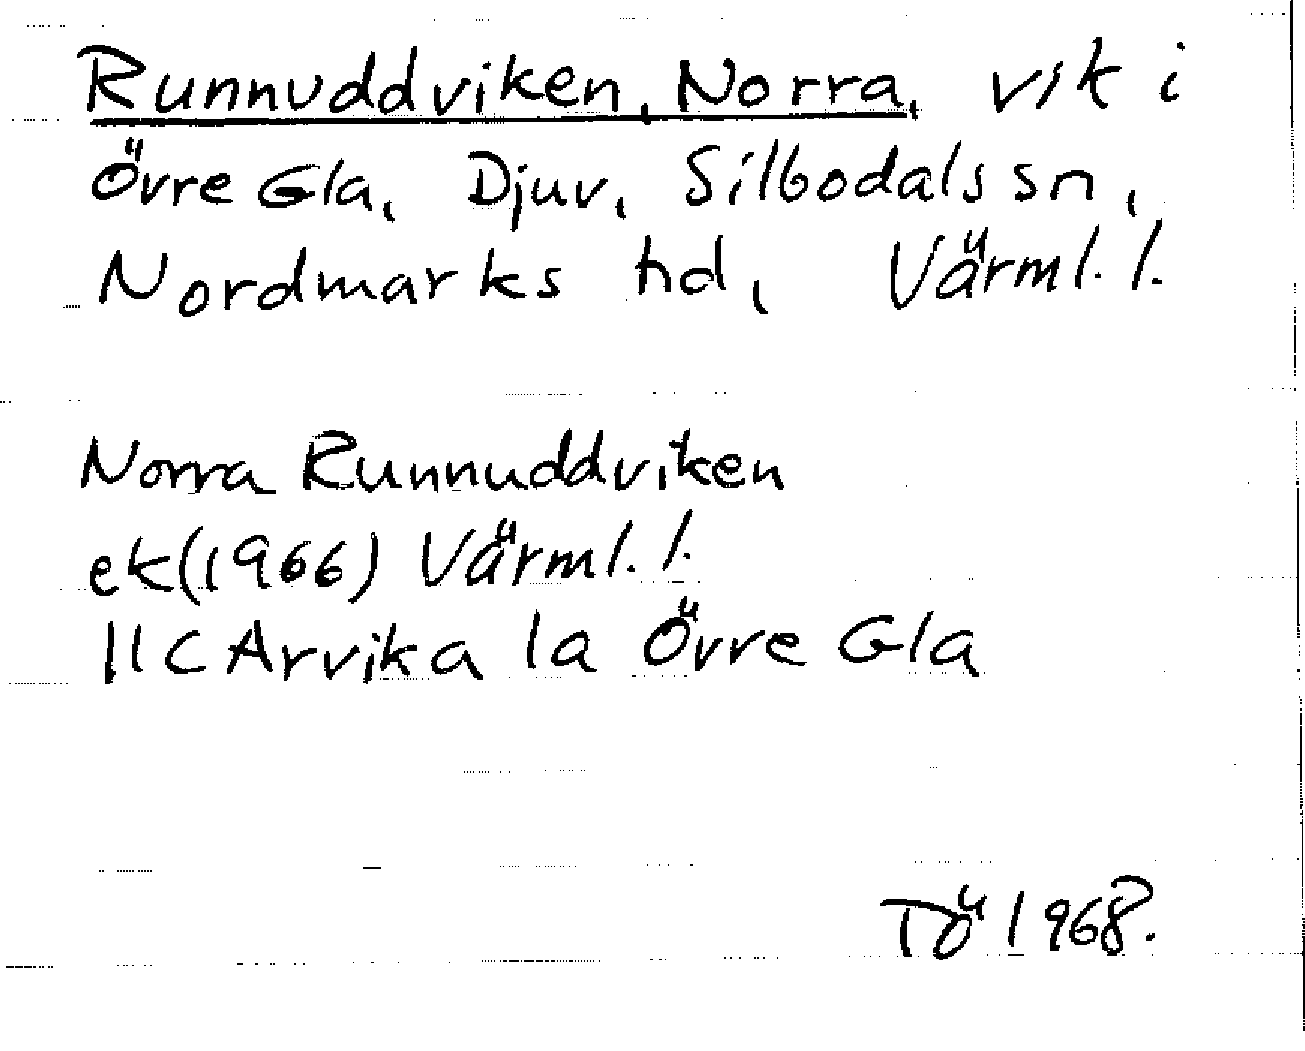 Runnuddviken, Norra, vik i
Övre Gla, Djuv, Silbodals sn,
Nordmarks hd, Värml. l.
Norra Runnuddviken
ek(1966) Värml. l.
11C Arvika 1a Övre Gla
Tö 1968.